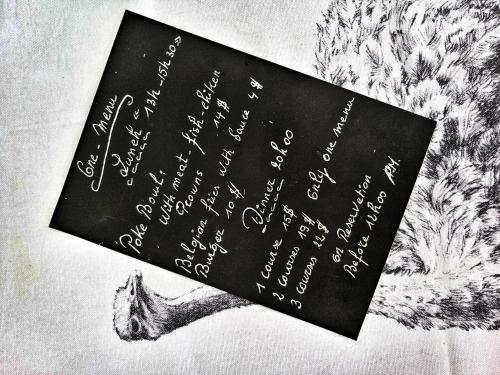 One - Menu
Lunch 13h - 15h30
Poke Bowl:
With meat fish - chiken
Prowns 14$
Belgian fries with Sauce 4$
Burger 10$
Dinner 20h00
1 course 15$ only one menu
2 courses 19$
3 courses 22$
on Reservation
Before 12h00 AM.